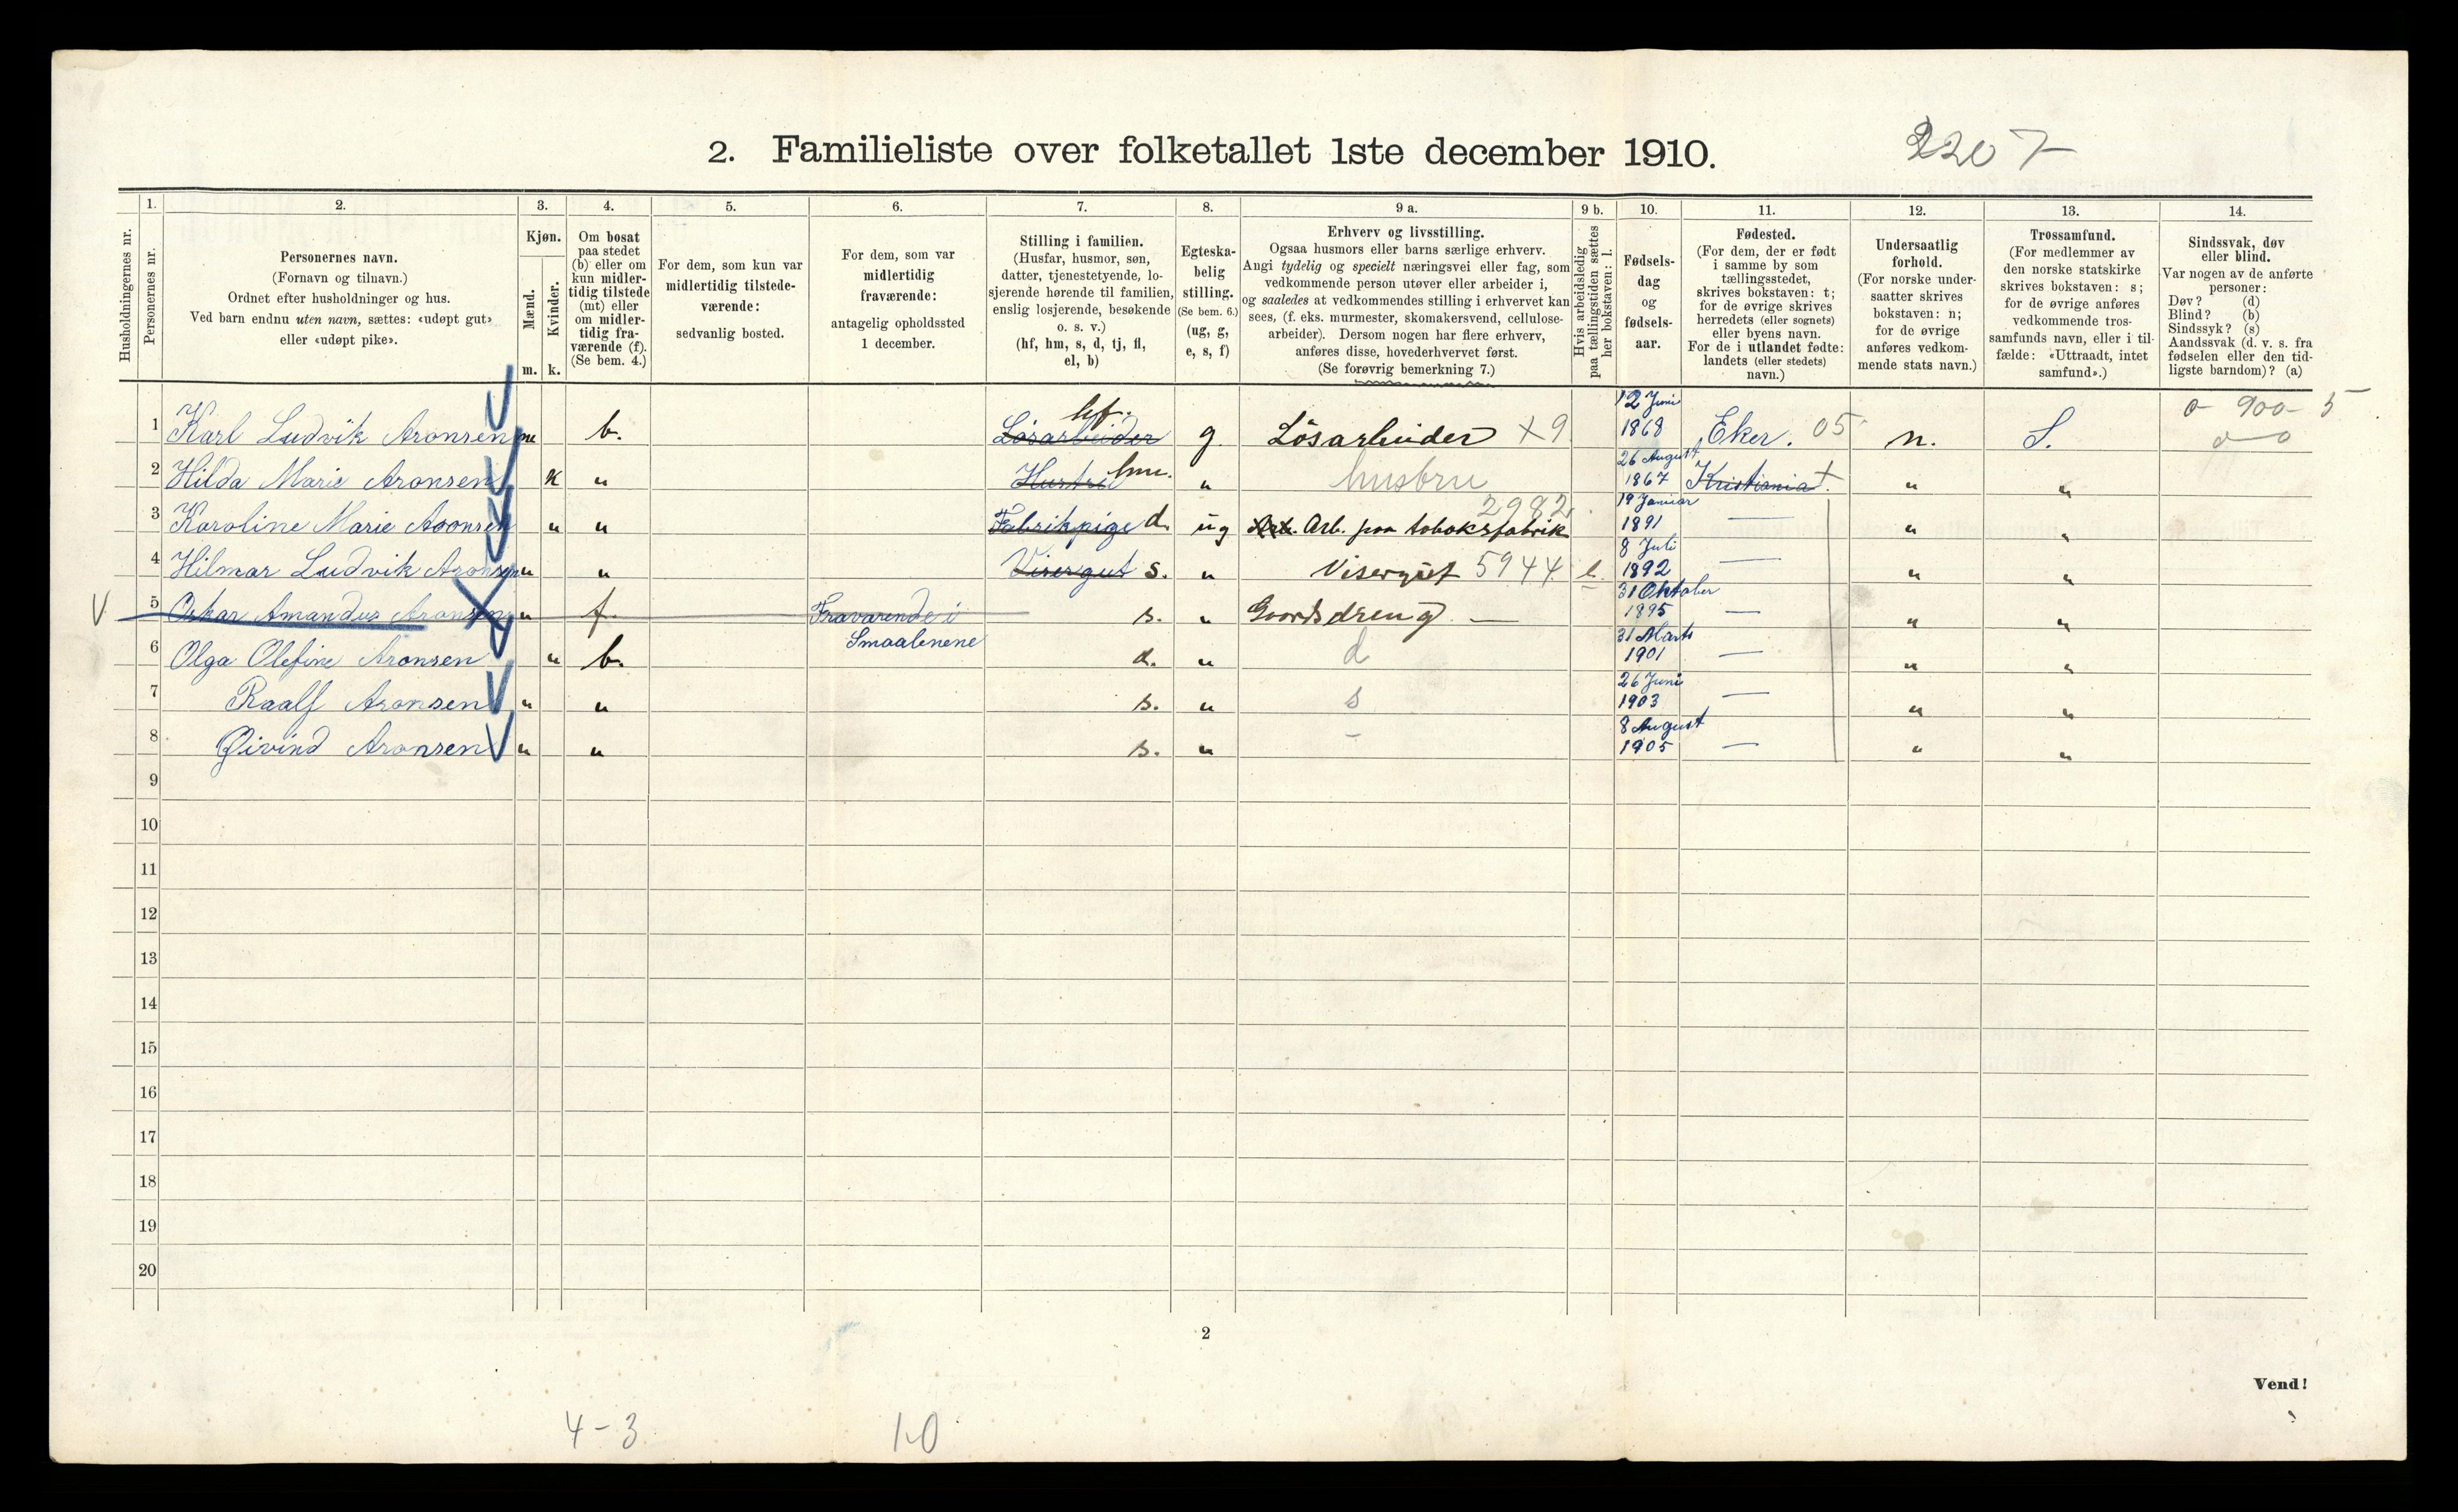 2. Familieliste over folketallet 1ste december 1910.
2207
1. 2. 3. 4. 5. 6. 7. 8. 9 a. 9 b. 10. 11. 12. 13. 14.
Husholdningernes nr.
Personernes nr.
Personernes navn.
(Fornavn og tilnavn.)
Ordnet efter husholdninger og hus.
Ved barn endnu uten navn, sættes: «udøpt gut»
eller «udøpt pike».
Kjøn.
Mænd.
Kvinder.
m. k.
Om bosat
paa stedet
(b) eller om
kun midler-
tidig tilstede
(mt) eller
om midler-
tidig fra-
værende (f).
(Se bem. 4.)
For dem, som kun var
midlertidig tilstede-
værende:
sedvanlig bosted.
For dem, som var
midlertidig
fraværende:
antagelig opholdssted
1 december.
Stilling i familien.
(Husfar, husmor, søn,
datter, tjenestetyende, lo-
sjerende hørende til familien,
enslig losjerende, besøkende
o. s. v.)
(hf, hm, s, d, tj, fl,
el, b)
Egteska-
belig
stilling.
(Se bem. 6.)
(ug, g,
e, s, f)
Erhverv og livsstilling.
Ogsaa husmors eller barns særlige erhverv.
Angi tydelig og specielt næringsvei eller fag, som
vedkommende person utøver eller arbeider i,
og saaledes at vedkommendes stilling i erhvervet kan
sees, (f. eks. murmester, skomakersvend, cellulose-
arbeider). Dersom nogen har flere erhverv,
anføres disse, hovederhvervet først.
(Se forøvrig bemerkning 7.)
Hvis arbeidsledig
paa tællingstiden sættes
her bokstaven: l.
Fødsels-
dag
og
fødsels-
aar.
Fødested.
(For dem, der er født
i samme by som
tællingsstedet,
skrives bokstaven: t;
for de øvrige skrives
herredets (eller sognets)
eller byens navn.
For de i utlandet fødte:
landets (eller stedets)
navn.)
Undersaatlig
forhold.
(For norske under-
saatter skrives
bokstaven: n;
for de øvrige
anføres vedkom-
mende stats navn.)
Trossamfund.
(For medlemmer av
den norske statskirke
skrives bokstaven: s;
for de øvrige anføres
vedkommende tros-
samfunds navn, eller i til-
fælde: «Uttraadt, intet
samfund».)
Sindssvak, døv
eller blind.
Var nogen av de anførte
personer:
Døv? (d)
Blind? (b)
Sindssyk? (s)
Aandssvak (d. v. s. fra
fødselen eller den tid-
ligste barndom)? (a)
1 Karl Ludvik Aronsen m b. Løsarbeider hf. g. Løsarbeider X9 12 Juni 1868 Eker. 05 n. S. 0 - 900 - 5
0—0
2 Hilda Marie Aronsen K " Hustru hm. " husbru 26 August 1867 Kristiania t. " "
3 Karoline Marie Aronsen " " Fabrikpige d. ug Arb. Arb. paa tobaksfabrik 2982 19 Januar 1891 — " "
4 Hilmar Ludvik Aronsen " " Visergut s. " Visergut 5944 l. 8 Juli 1892 — " "
V 5 Oskar Amandus Aronsen " f. Fraværende i Smaalenene s. " Gaardsdreng — 31 Oktober 1895 — " "
6 Olga Olefine Aronsen " b. d. " d 31 Marts 1901 — " "
7 Raalf Aronsen " " s. " s 26 Juni 1903 — " "
8 Øivind Aronsen " " s. " – 8 August 1905 — " "
9
10
11
12
13
14
15
16
17
18
19
20
2
Vend!
4 - 3
1-0